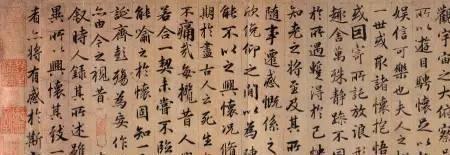 觀宇宙之大俯察品
所以遊目騁懷足以
娛信可樂也夫人之
一世或取諸懷抱悟
或因寄所託放浪形
趣舍萬殊靜躁不同
於所遇蹔得於己怏
知老之將至及其所
隨事遷感慨係之
欣俛仰之閒以為陳
能不以之興懷況脩
期於盡古人云死生
不痛哉每攬昔人
若合一契未嘗不臨
能喻之於懷固知一
誕齊彭殤為妄作
亦由今之視昔
敘時人錄其所述雖
異所以興懷其致一
者亦將有感於斯